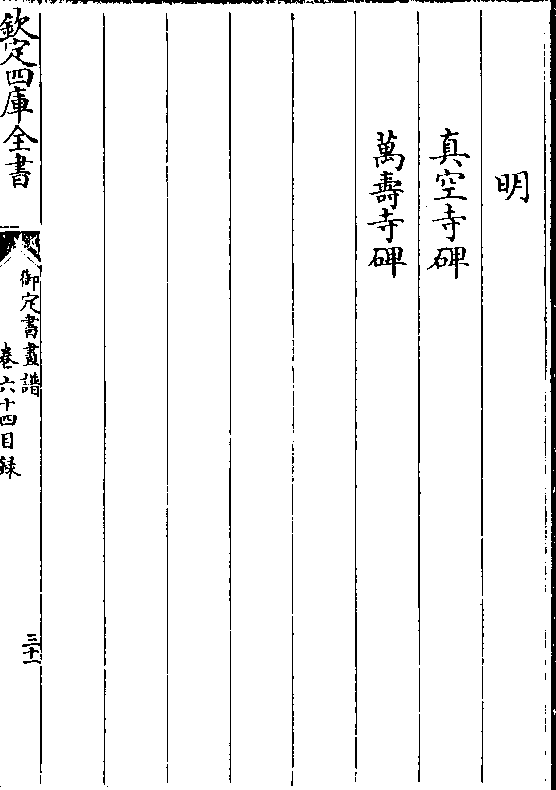 明
真空寺碑
萬壽寺碑
欽定四庫全書
御定書畫譜
卷六十四目録
三十一